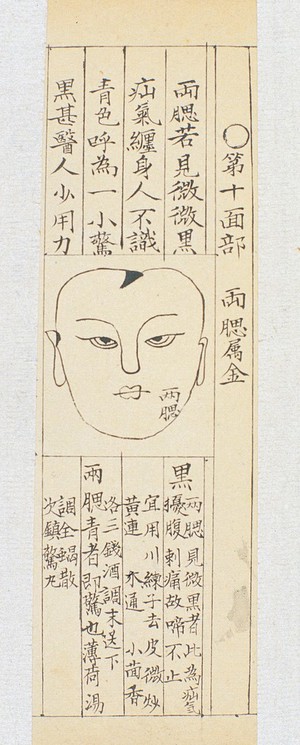 〇第十面部 兩腮属金
兩腮若見微微黑
疝氣纏身人不識
青色呼為一小驚
黑甚醫人少用力
兩腮
黑兩腮見微黑者此為疝氣
擾腹刺痛故啼不止
宜用川練子去皮微炒
黄連 木通 小茴香
各三錢酒調末送下
兩腮青者即驚也薄荷湯
調全蝎散
次鎮驚丸